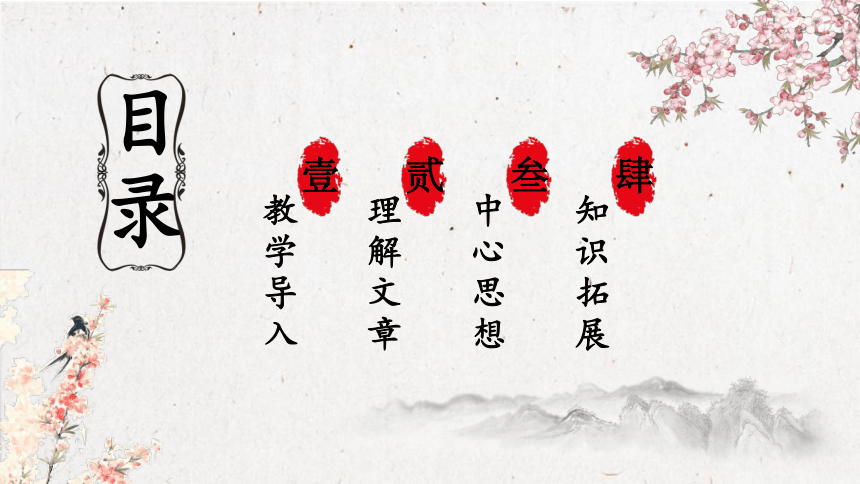 目录
壹
教学导入
贰
理解文章
叁
中心思想
肆
知识拓展